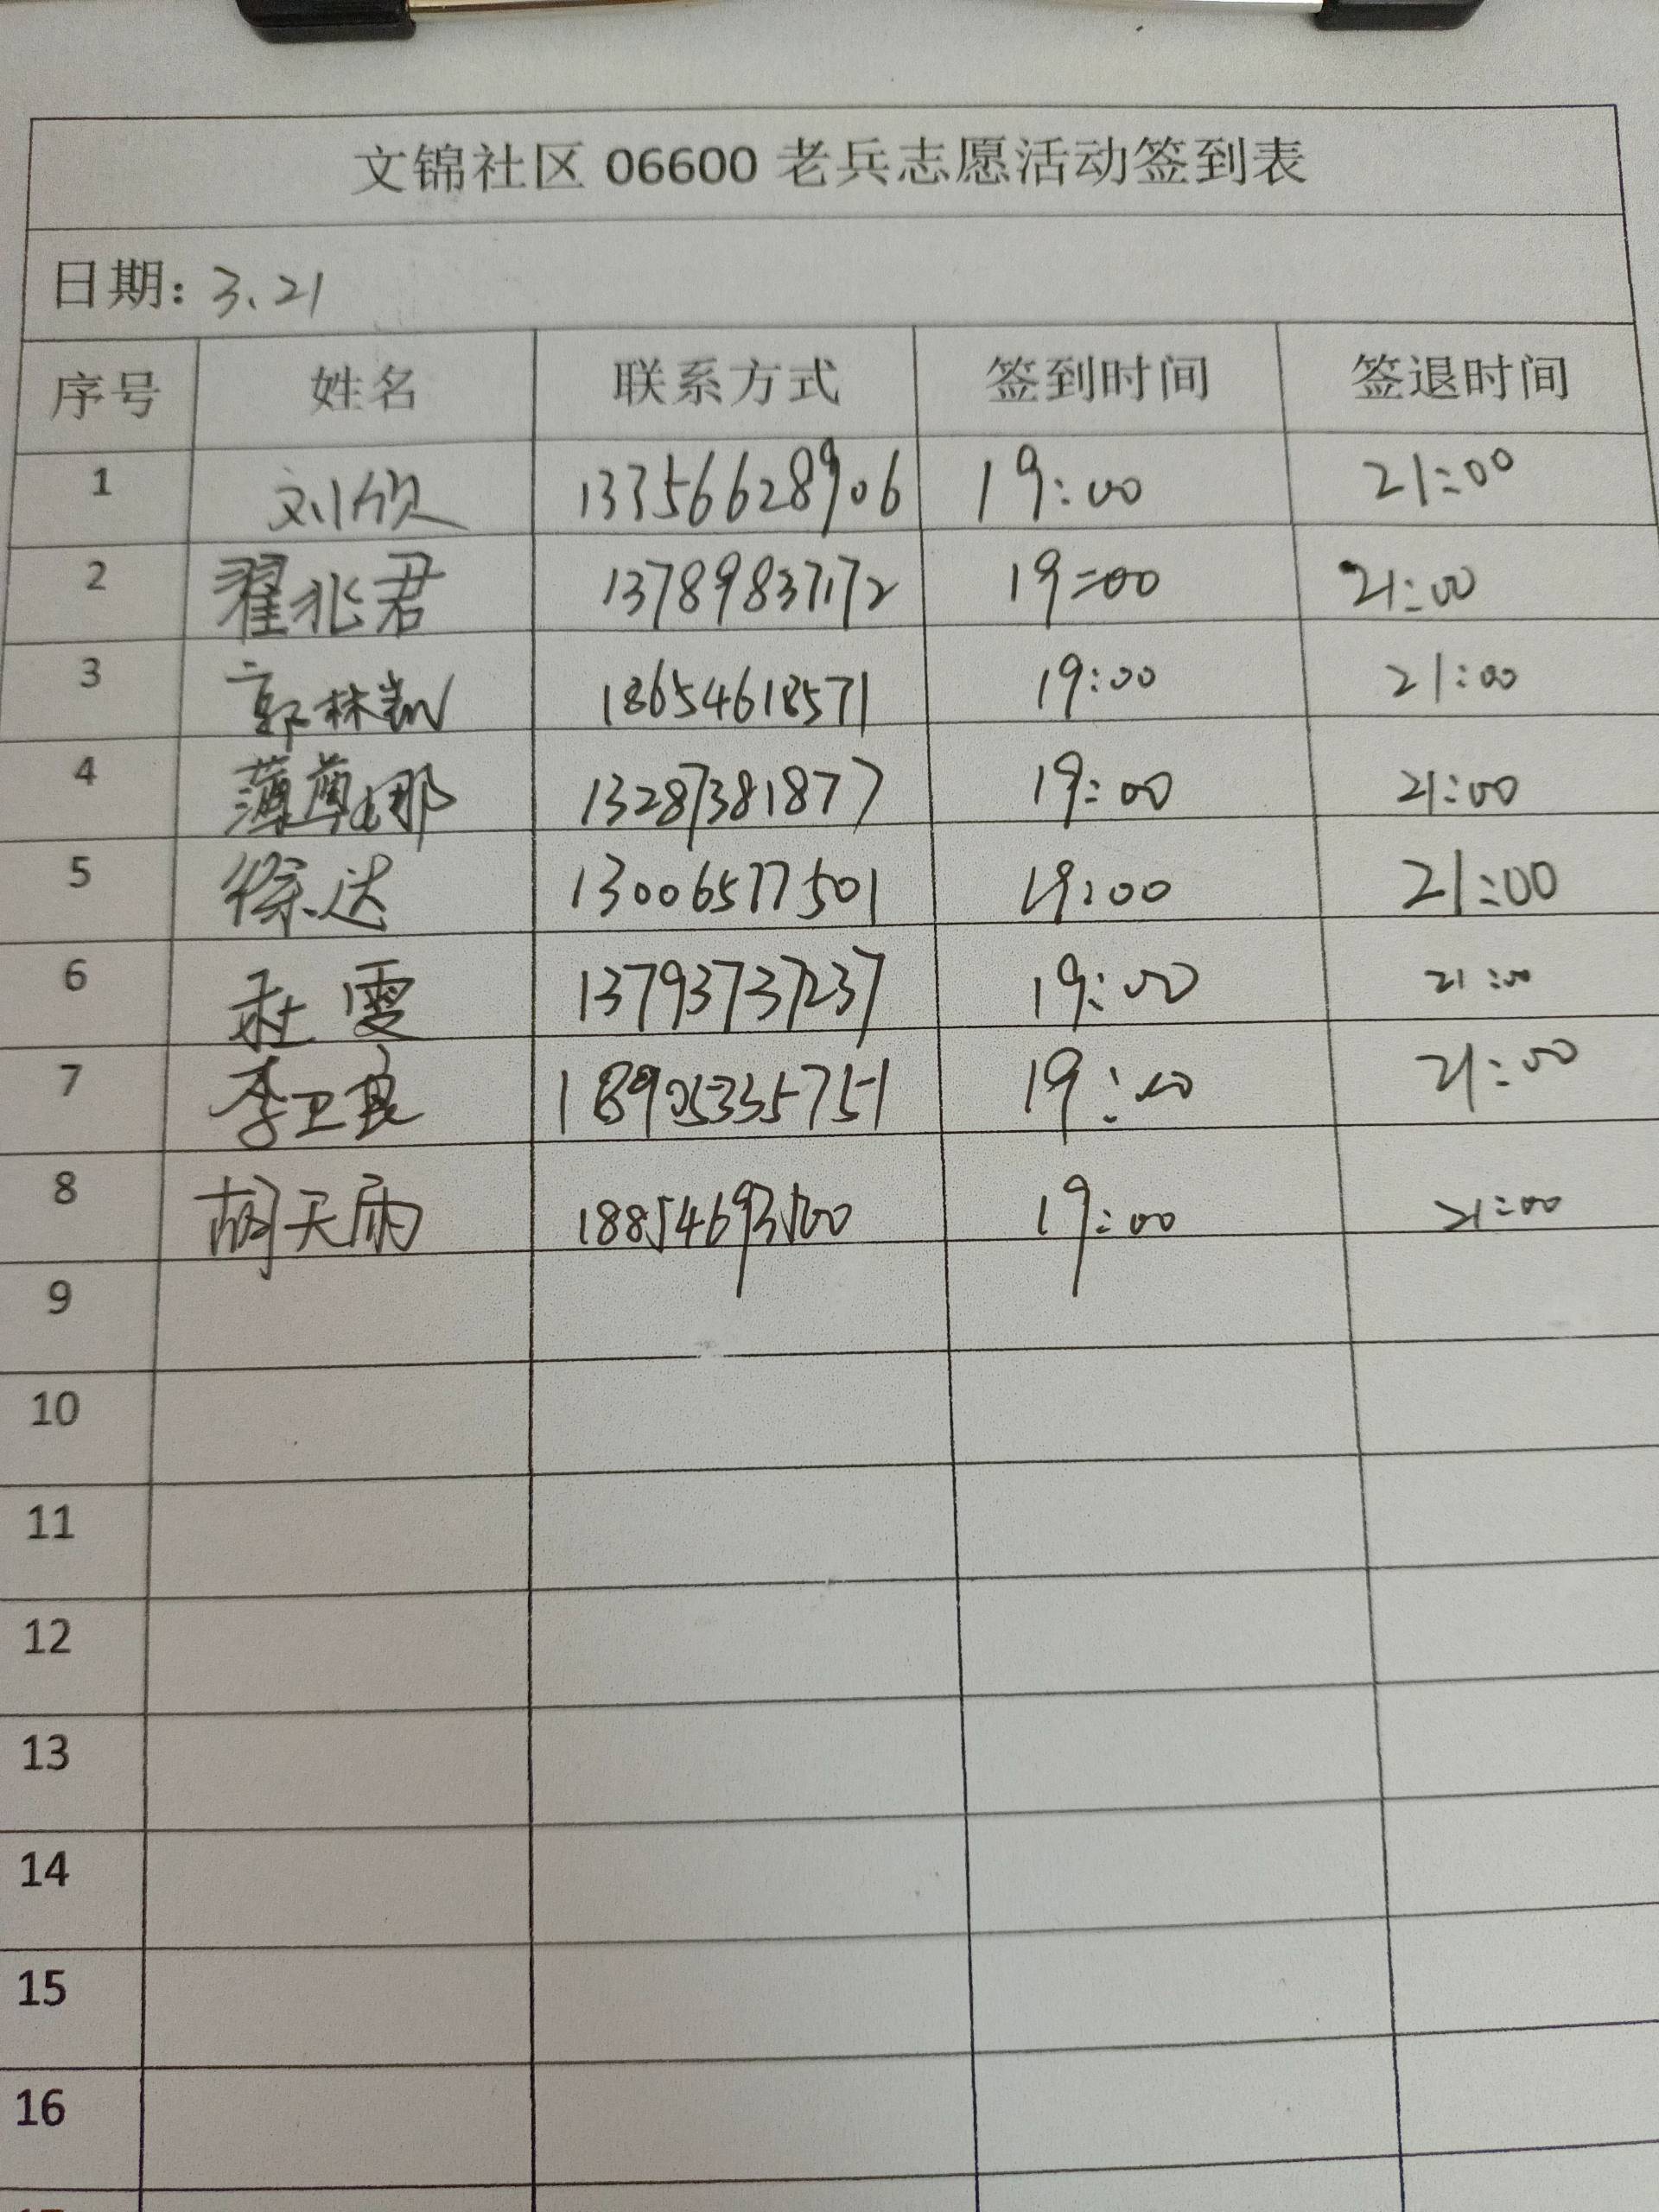 文锦社区 06600 老兵志愿活动签到表
日期: 3.21
序号 姓名 联系方式 签到时间 签退时间
1 刘欣 13356628906 19:00 21:00
2 翟兆君 13789837172 19:00 21:00
3 郭林凯 18654618571 19:00 21:00
4 薄薄娜 13287381877 19:00 21:00
5 徐达 13006577501 19:00 21:00
6 杜雯 13793737237 19:00 21:00
7 李卫良 18905335751 19:00 21:00
8 胡天雨 18854693500 19:00 21:00
9
10
11
12
13
14
15
16